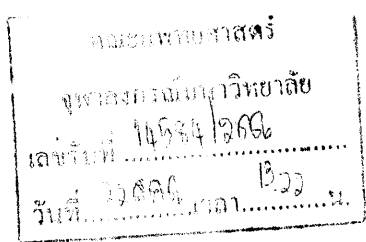 คณะแพทยศาสตร์
จุฬาลงกรณ์มหาวิทยาลัย
เลขรับที่ 14584/2566
วันที่ 22 เวลา 13.22 น.